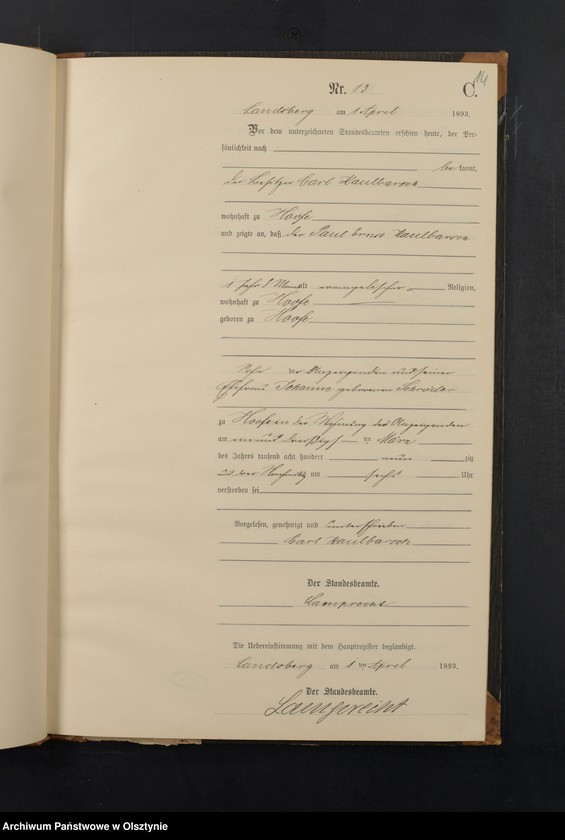 14
Nr. 13
C.
Landsberg am 1 April 1893.
Vor dem unterzeichneten Standesbeamten erschien heute, der Per-
sönlichkeit nach
be kannt,
der Besitzer Carl Kaulbarsch
wohnhaft zu Hoofe
und zeigte an, daß der Paul Ernst Kaulbarsch
1 Jahr alt evangelischer Religion,
wohnhaft zu Hoofe
geboren zu Hoofe
Sohn des Anzeigenden und seiner
Ehefrau Johanne geborenen Schröder
zu Hoofe in der Wohnung des Anzeigenden
am ein und dreißigsten März
des Jahres tausend acht hundert neun zig
Uhr
verstorben sei
Vorgelesen, genehmigt und unterschrieben
Carl Kaulbarsch
Der Standesbeamte.
Lamprecht
Die Uebereinstimmung mit dem Hauptregister beglaubigt.
Landsberg am 1 ten April 1893.
Der Standesbeamte.
Lamprecht
Archiwum Państwowe w Olsztynie